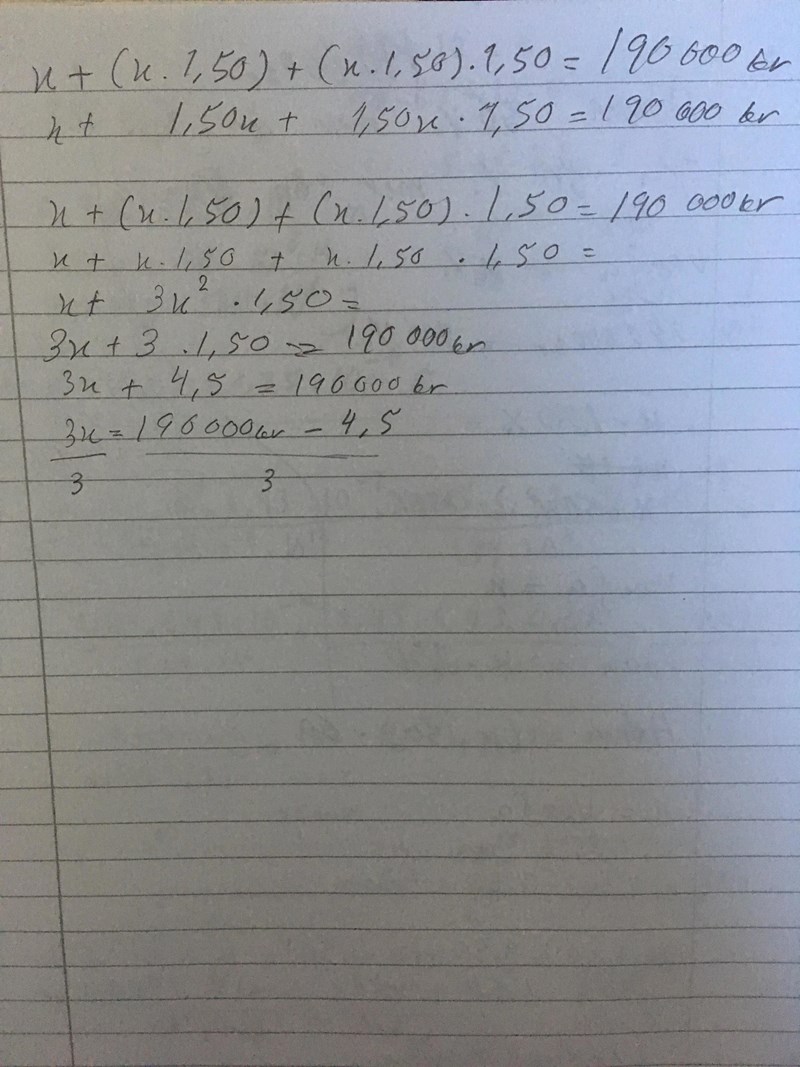 x + (x · 1,50) + (x · 1,50) · 1,50 = 190 000 kr
x + 1,50x + 1,50x · 1,50 = 190 000 kr
x + (x · 1,50) + (x · 1,50) · 1,50 = 190 000 kr
x + x · 1,50 + x · 1,50 · 1,50 =
x + 3x² · 1,50 =
3x + 3 · 1,50 = 190 000 kr
3x + 4,5 = 190000 kr
3x = 190 000 kr - 4,5
3 3